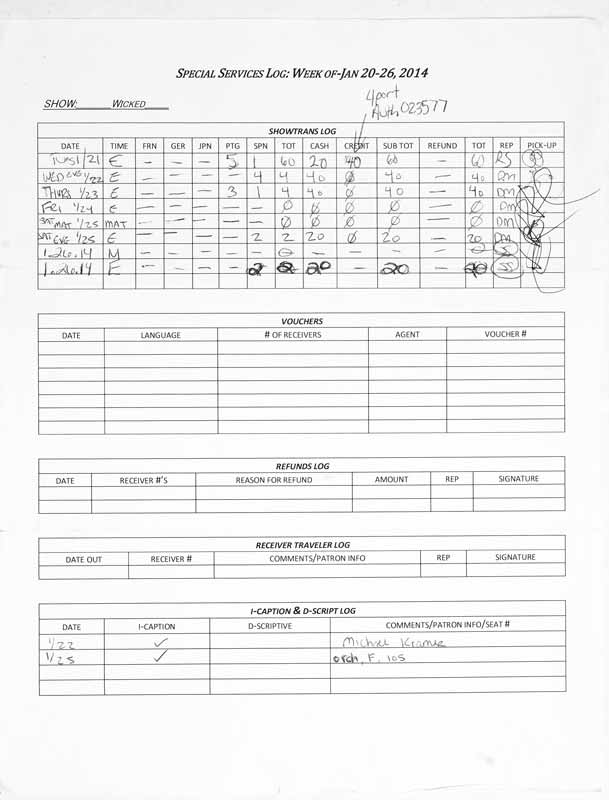 SPECIAL SERVICES LOG: WEEK OF-JAN 20-26, 2014
4port
Auth 023577
SHOW: WICKED
SHOWTRANS LOG
DATE TIME FRN GER JPN PTG SPN TOT CASH CREDIT SUB TOT REFUND TOT REP PICK-UP
Tues 1/21 E — — — 5 1 60 20 40 60 — 60 RS
WED EVE 1/22 E — — — — 4 4 40 Ø 40 — 40 DM
THURS 1/23 E — — — 3 1 4 40 Ø 40 — 40 DM
Fri 1/24 E — — — — — Ø Ø Ø Ø — Ø DM
SAT MAT 1/25 MAT — — — — — Ø Ø Ø Ø — Ø DM
SAT EVE 1/25 E — — — — 2 2 20 Ø 20 — 20 DM
1.26.14 M — — — — — 0 — — — — 0 SS
1.26.14 E — — — — 2 2 20 — 20 — 20 SS
VOUCHERS
DATE LANGUAGE # OF RECEIVERS AGENT VOUCHER #
REFUNDS LOG
DATE RECEIVER #'S REASON FOR REFUND AMOUNT REP SIGNATURE
RECEIVER TRAVELER LOG
DATE OUT RECEIVER # COMMENTS/PATRON INFO REP SIGNATURE
I-CAPTION & D-SCRIPT LOG
DATE I-CAPTION D-SCRIPTIVE COMMENTS/PATRON INFO/SEAT #
1/22 ✓ Michael Kramer
1/25 ✓ orch, F, 105